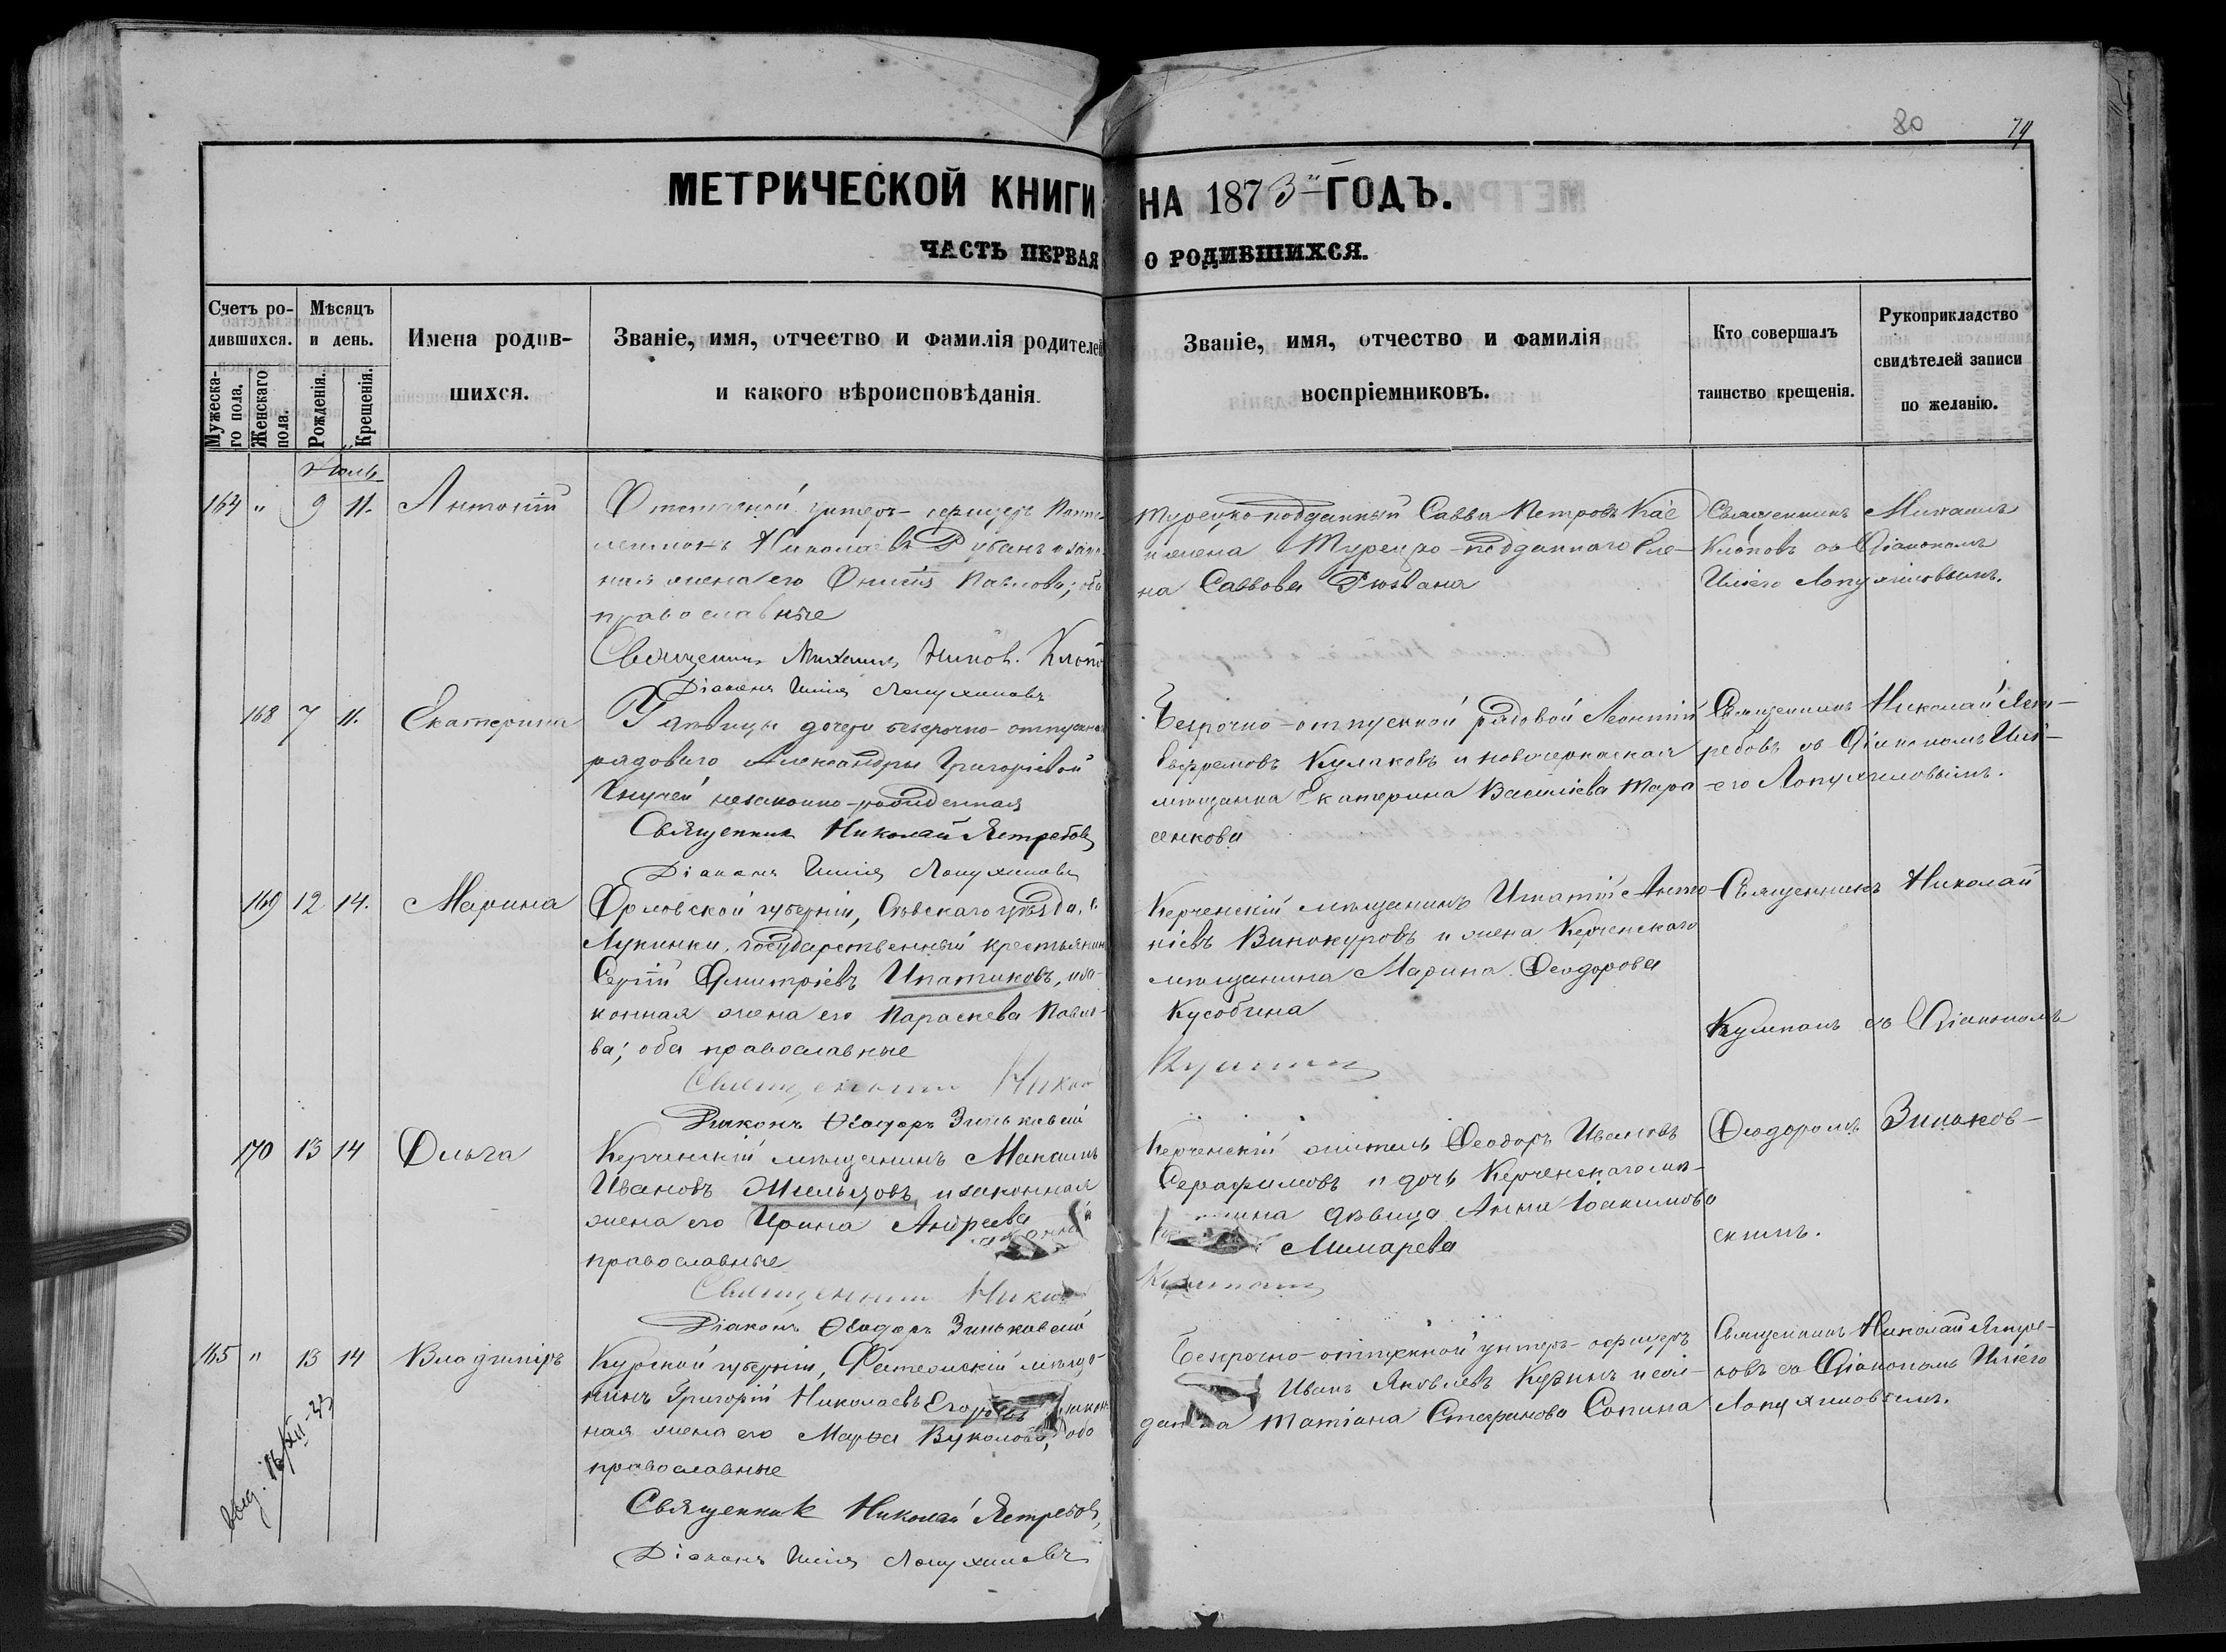 80 79
МЕТРИЧЕСКОЙ КНИГИ НА 1873й ГОДЪ.
ЧАСТЬ ПЕРВАЯ О РОДИВШИХСЯ.
Счетъ ро-
дившихся.
Мужеска-
го пола.
Женскаго
пола.
Мѣсяцъ
и день.
Рожденія.
Крещенія.
Имена родив-
шихся.
Званіе, имя, отчество и фамилія родителей
и какого вѣроисповѣданія.
Званіе, имя, отчество и фамилія
воспріемниковъ.
Кто совершалъ
таинство крещенія.
Рукоприкладство
свидѣтелей записи
по желанію.
Июль
164 " 9 11. Антоній
Отставной унтеръ-офицеръ Панте-
леимонъ Николаевъ Рубанъ и закон-
ная жена его Онисія Павлова; оба
православные
Священникъ Михаилъ Клопо
Діаконъ Илія Лопухиновъ
Турецко-подданный Савва Петровъ
и жена Турецко-подданнаго Еле-
на Саввова
Священникъ Михаилъ
Клоповъ съ Діакономъ
Иліею Лопухиновымъ.
168 7 11. Екатерина
У дѣвицы дочери безсрочно-отпускнаго
рядоваго Александры Григоріевой
незаконно-рожденная
Священникъ Николай Ястребовъ
Діаконъ Илія Лопухиновъ
Безсрочно-отпускной рядовой Леонтій
Евфремовъ Кулаковъ и новочеркаская
мѣщанка Екатерина Василіева Тара
сенкова
Священникъ Николай Яст-
ребовъ съ Діакономъ Илі-
ею Лопухиновымъ.
169 12 14. Марина
Орловской губерніи, Сѣвскаго уѣзда, с.
Лукинки, государственный крестьянинъ
Сергій Димитріевъ Ипатиковъ, и за-
конная жена его Параскева Павло-
ва; оба православные
Священникъ Никол
Діаконъ Ѳеодоръ Зиньковскій
Керченскій мѣщанинъ Игнатій Анто-
ніевъ Винокуровъ и жена Керченскаго
мѣщанина Марина Ѳеодорова
Кусобина
Священникъ Николай
съ Діакономъ
170 13 14 Ольга
Керченскій мѣщанинъ Максимъ
Ивановъ Жильцовъ и законная
жена его Ирина Андреева
православные
Священникъ Никол
Діаконъ Ѳеодоръ Зиньковскій
Керченскій житель Ѳеодоръ Ивановъ
Серафимовъ и дочь Керченскаго мѣ-
щанина дѣвица Анна Іоакимова
Ѳеодоромъ Зиньков-
скимъ.
165 " 13 14 Владиміръ
Курской губерніи, Фатежскій мѣща-
нинъ Григорій Николаевъ Егоровъ и закон-
ная жена его Марѳа Вуколова, оба
православные
Священникъ Николай Ястребовъ,
Діаконъ Илія Лопухиновъ
Безсрочно-отпускной унтеръ-офицеръ
Иванъ Яковлевъ Кузинъ и сол-
датка Татіана Стефанова Сопина
Священникъ Николай Ястре-
бовъ съ Діакономъ Иліею
Лопухиновымъ.